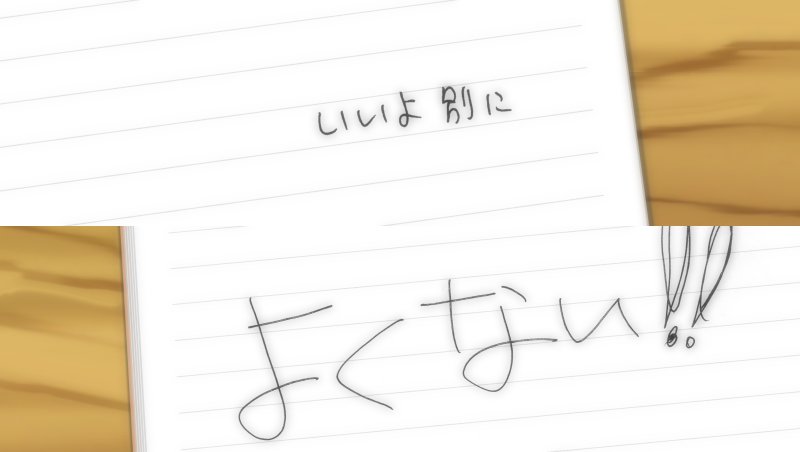 いいよ 別に
よくない!!